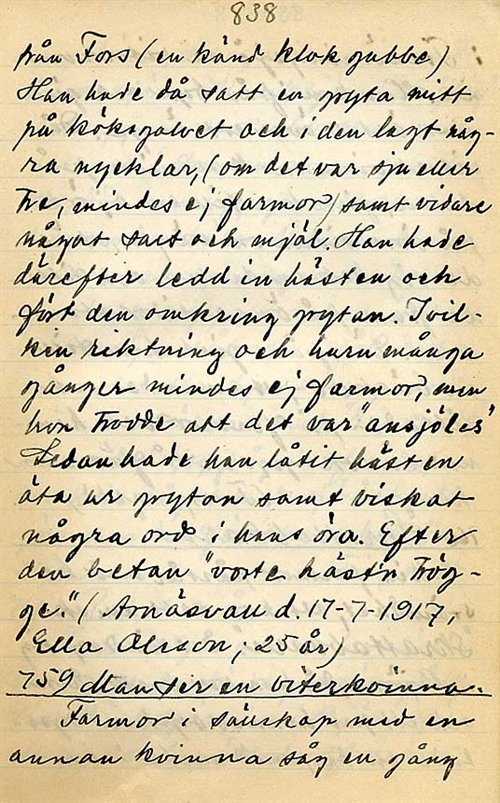 838
från Fors (en känd klok gubbe)
Han hade då satt en gryta mitt
på köksgolvet och i den lagt någ-
ra nycklar, (om det var sju eller
tre, mindes ej farmor) samt vidare
något salt och mjöl. Han hade
därefter ledd in hästen och
fört den omkring grytan. I vil-
ken riktning och huru många
gånger mindes ej farmor, men
hon trodde att det var "ansjöles"
Sedan hade han låtit hästen
äta ur grytan samt viskat
några ord i hans öra. Efter
den betan "vorte häst'n trög-
ge." (Arnäsvall d. 17-7-1917,
Ella Olsson; 25 år)
759 Man ser en viterkvinna.
Farmor i sällskap med en
annan kvinna såg en gång